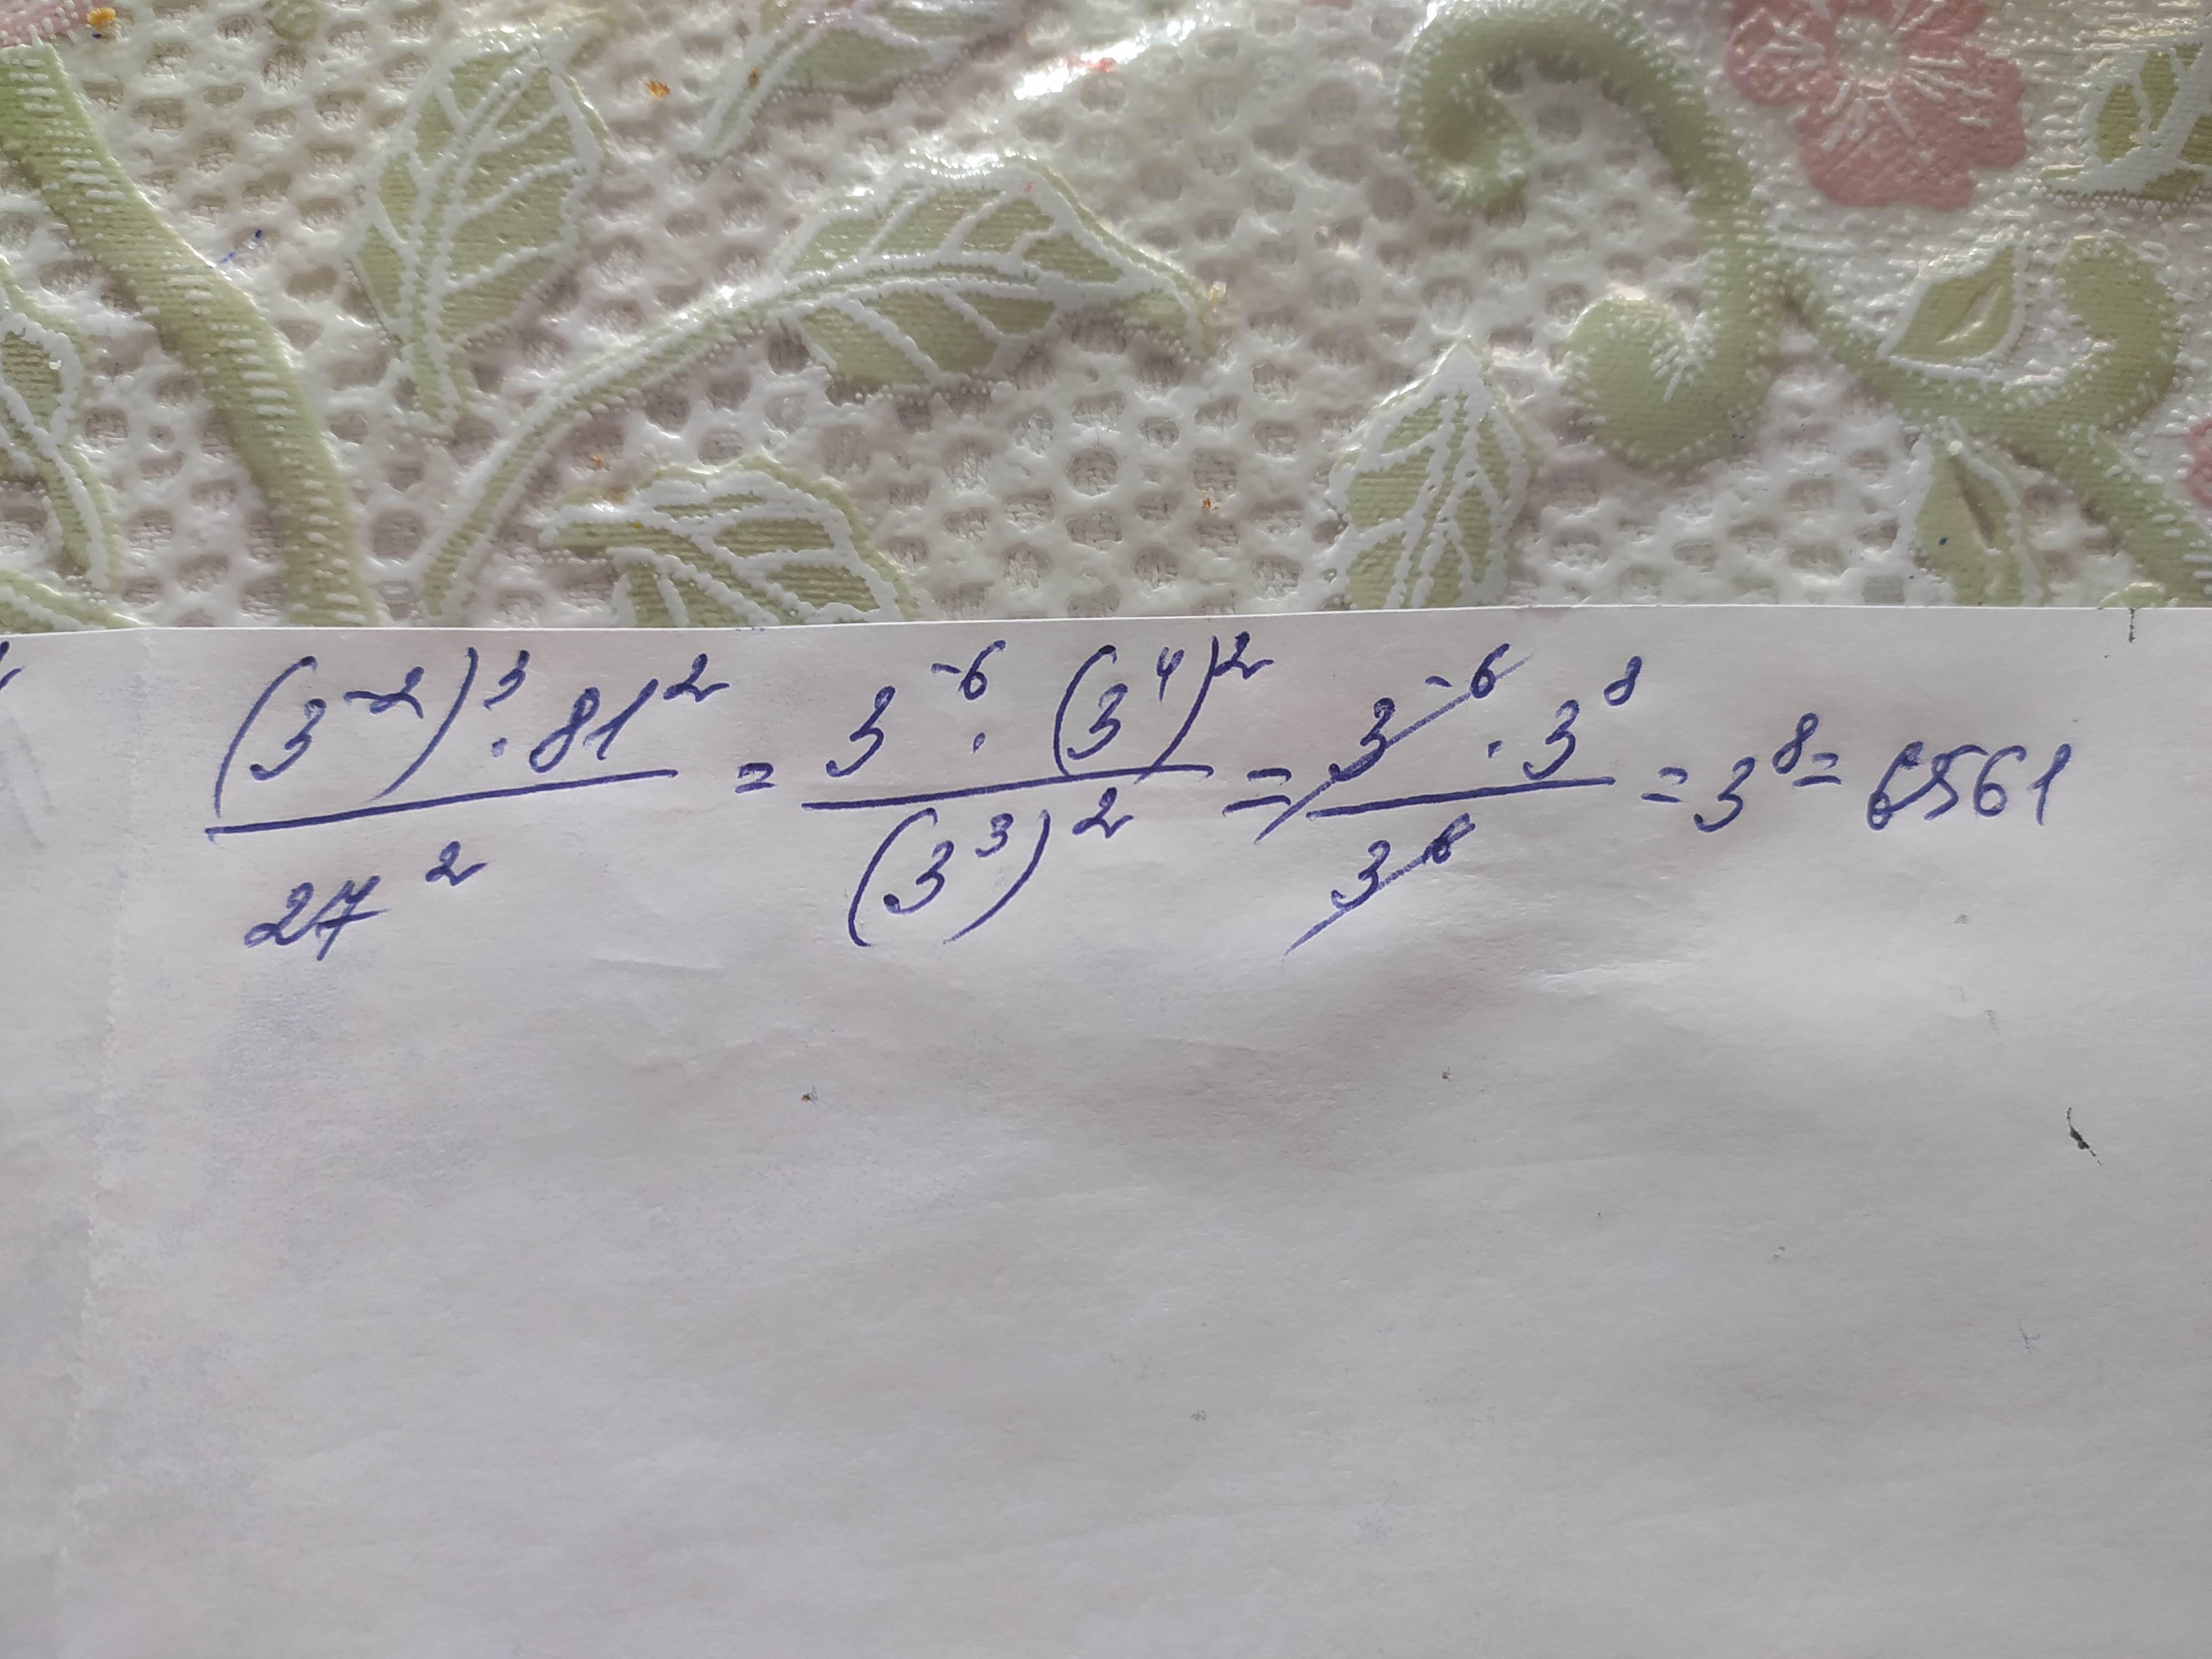 (3⁻²)³ · 81² / 27² = 3⁻⁶ · (3⁴)² / (3³)² = 3⁻⁶ · 3⁸ / 3⁶ = 3⁸ = 6561